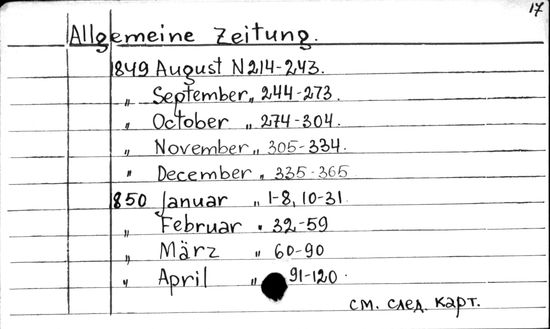 17
Allgemeine Zeitung.
1849 August N 214-243.
„ September „ 244-273.
„ October „ 274-304.
„ November „ 305-334.
„ December „ 335-365
1850 Januar „ 1-8, 10-31
„ Februar „ 32-59
„ März „ 60-90
„ April „ 91-120.
см. след. карт.